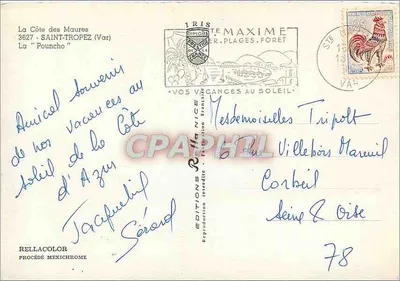 La Côte des Maures
3627 - SAINT-TROPEZ (Var)
La "Pouncho"
IRIS
STE MAXIME
MER.PLAGES.FORET
VOS VACANCES AU SOLEIL
STE
VAR
Amical souvenir
de nos vacances au
soleil de la Côte
d'Azur
Jacqueline
Gérard
CPAPHIL.COM
EDITIONS Rella NICE
Reproduction interdite
Mesdemoiselles Tripolt
67 rue Villebois Mareuil
Corbeil
Seine & Oise
78
RELLACOLOR
PROCÉDÉ MEXICHROME